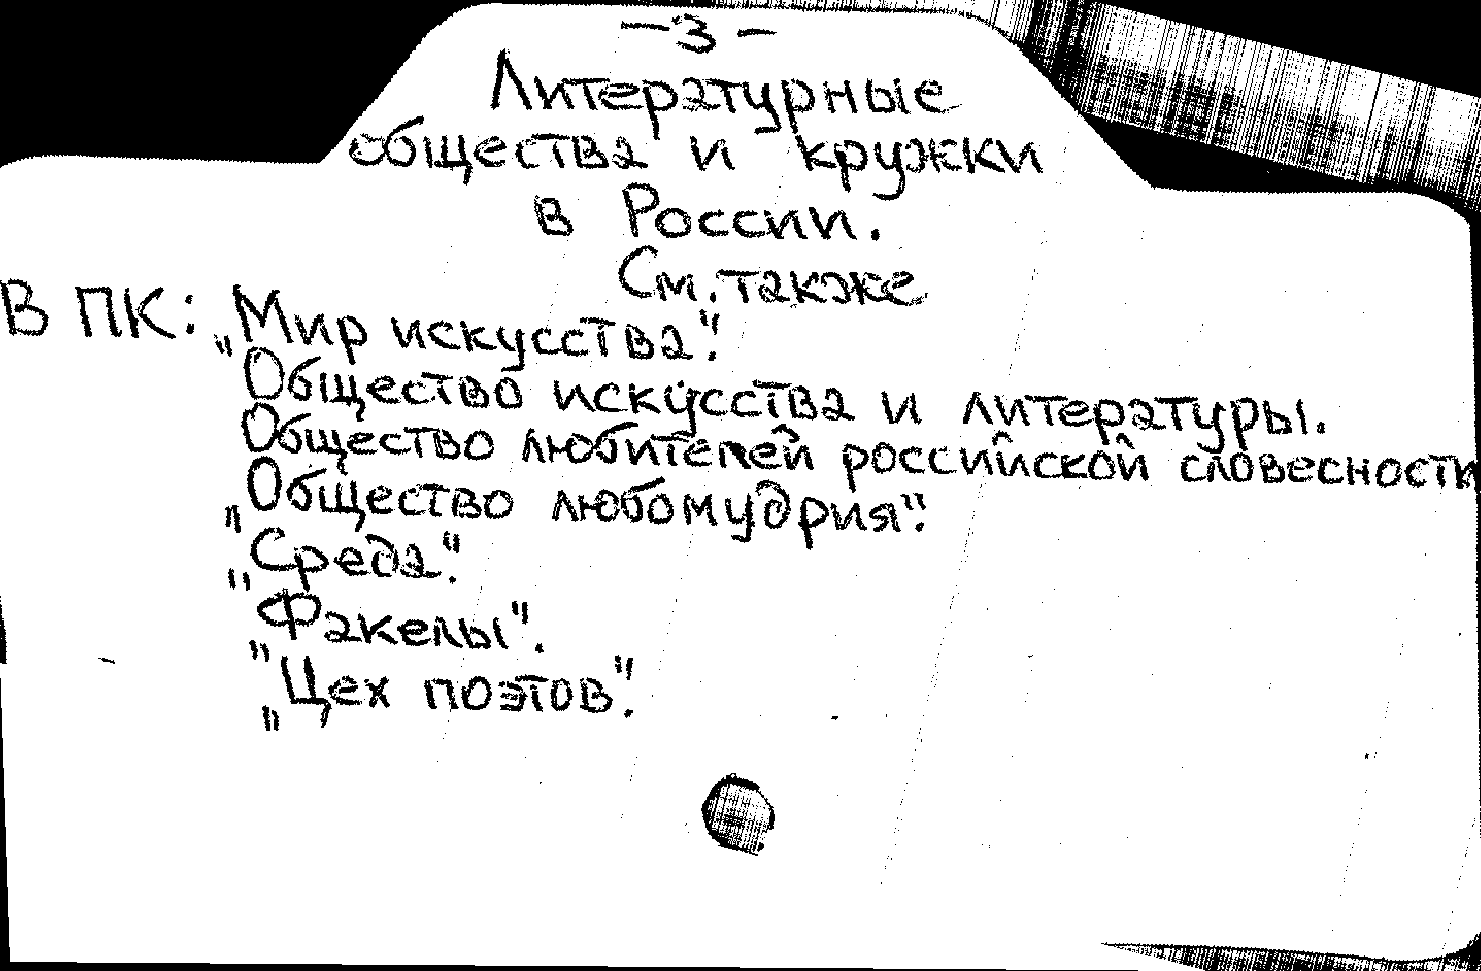 — 3 —
Литературные
общества и кружки
в России.
См. также
В ПК: „Мир искусства".
Общество искусства и литературы.
Общество любителей российской словесности
„Общество любомудрия".
„Среда".
„Факелы".
„Цех поэтов".